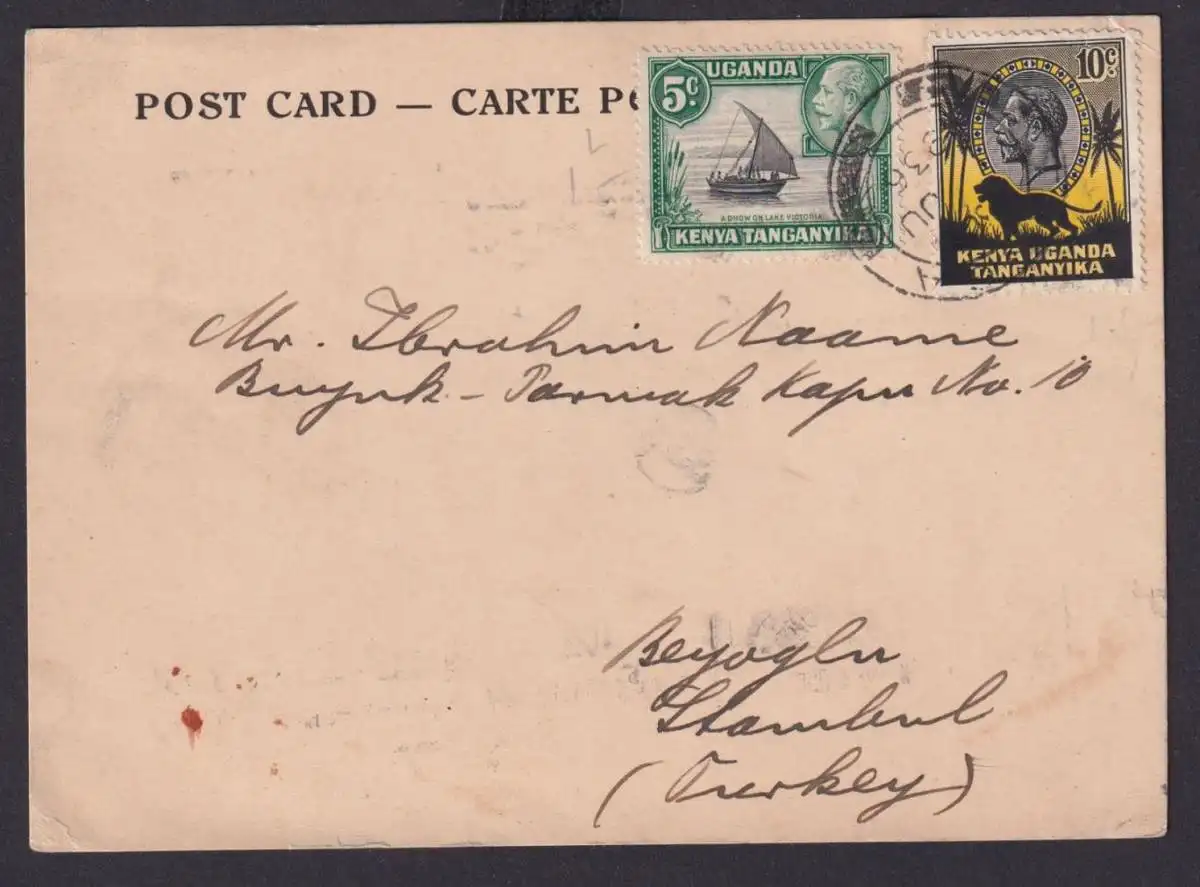 POST CARD — CARTE PO
UGANDA
5c.
A DHOW ON LAKE VICTORIA
KENYA TANGANYIKA
10c.
KENYA UGANDA
TANGANYIKA
Mr. Ibrahim Naame
Buyuk - Parmak Kapu No. 10
Beyoglu
Stambul
(Turkey)